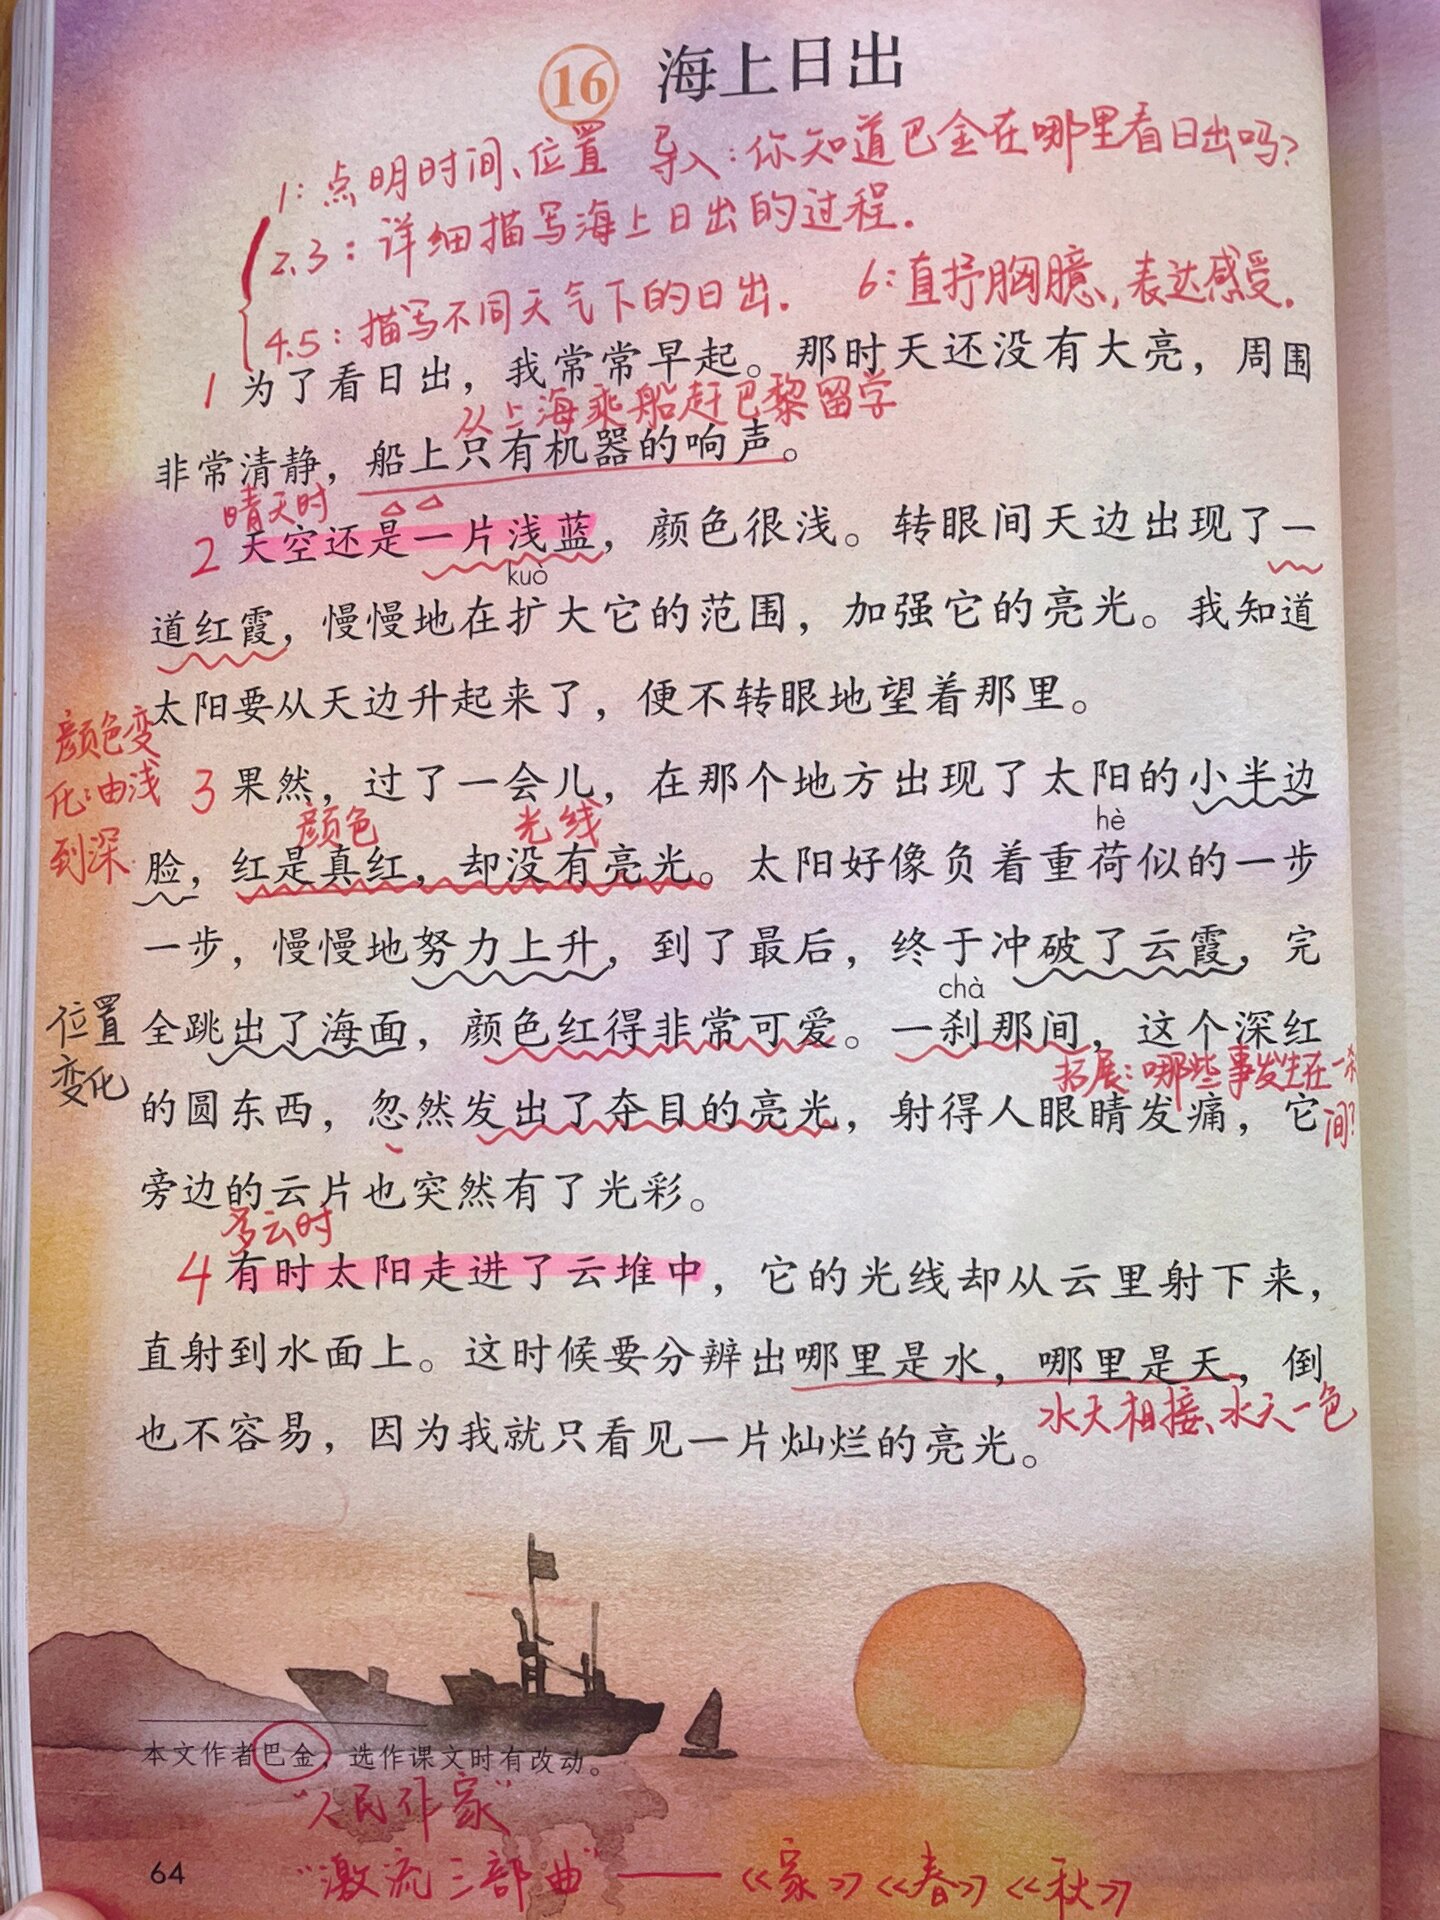 16 海上日出
1：点明时间、位置 导入：你知道巴金在哪里看日出吗？
2、3：详细描写海上日出的过程．
4、5：描写不同天气下的日出． 6：直抒胸臆，表达感受．
1 为了看日出，我常常早起。那时天还没有大亮，周围
从上海乘船赶巴黎留学
非常清静，船上只有机器的响声。
晴天时
2 天空还是一片浅蓝，颜色很浅。转眼间天边出现了一
kuò
道红霞，慢慢地在扩大它的范围，加强它的亮光。我知道
太阳要从天边升起来了，便不转眼地望着那里。
颜色变
化：由浅
到深
3 果然，过了一会儿，在那个地方出现了太阳的小半边
颜色 光线 hè
脸，红是真红，却没有亮光。太阳好像负着重荷似的一步
一步，慢慢地努力上升，到了最后，终于冲破了云霞，完
chà
位置
变化
全跳出了海面，颜色红得非常可爱。一刹那间，这个深红
拓展：哪些事发生在一刹
间？
的圆东西，忽然发出了夺目的亮光，射得人眼睛发痛，它
旁边的云片也突然有了光彩。
多云时
4 有时太阳走进了云堆中，它的光线却从云里射下来，
直射到水面上。这时候要分辨出哪里是水，哪里是天，倒
水天相接、水天一色
也不容易，因为我就只看见一片灿烂的亮光。
本文作者巴金，选作课文时有改动。
“人民作家”
64
“激流三部曲”——《家》《春》《秋》